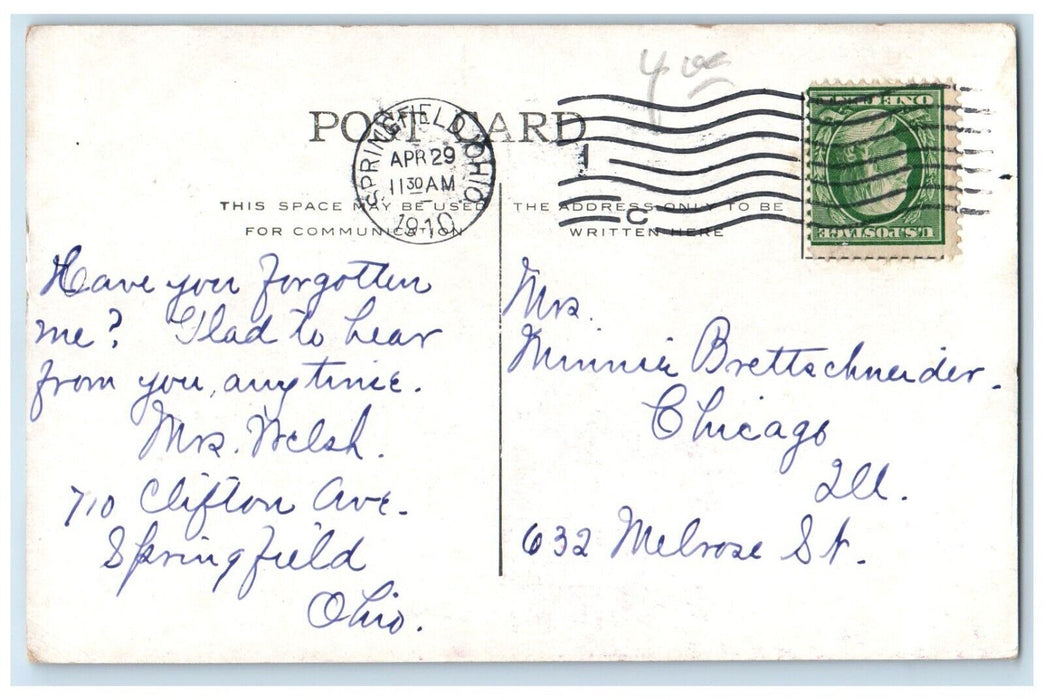 4 00
POST CARD
SPRINGFIELD, OHIO.
APR 29
11 30 AM
1910
1
C
ONE CENT
U.S. POSTAGE
THIS SPACE MAY BE USED
FOR COMMUNICATION
THE ADDRESS ONLY TO BE
WRITTEN HERE
Have you forgotten
me? Glad to hear
from you, anytime.
Mrs. Welsh.
710 Clifton Ave.
Springfield
Ohio.
Mrs.
Minnie Brettschneider.
Chicago
Ill.
632 Melrose St.